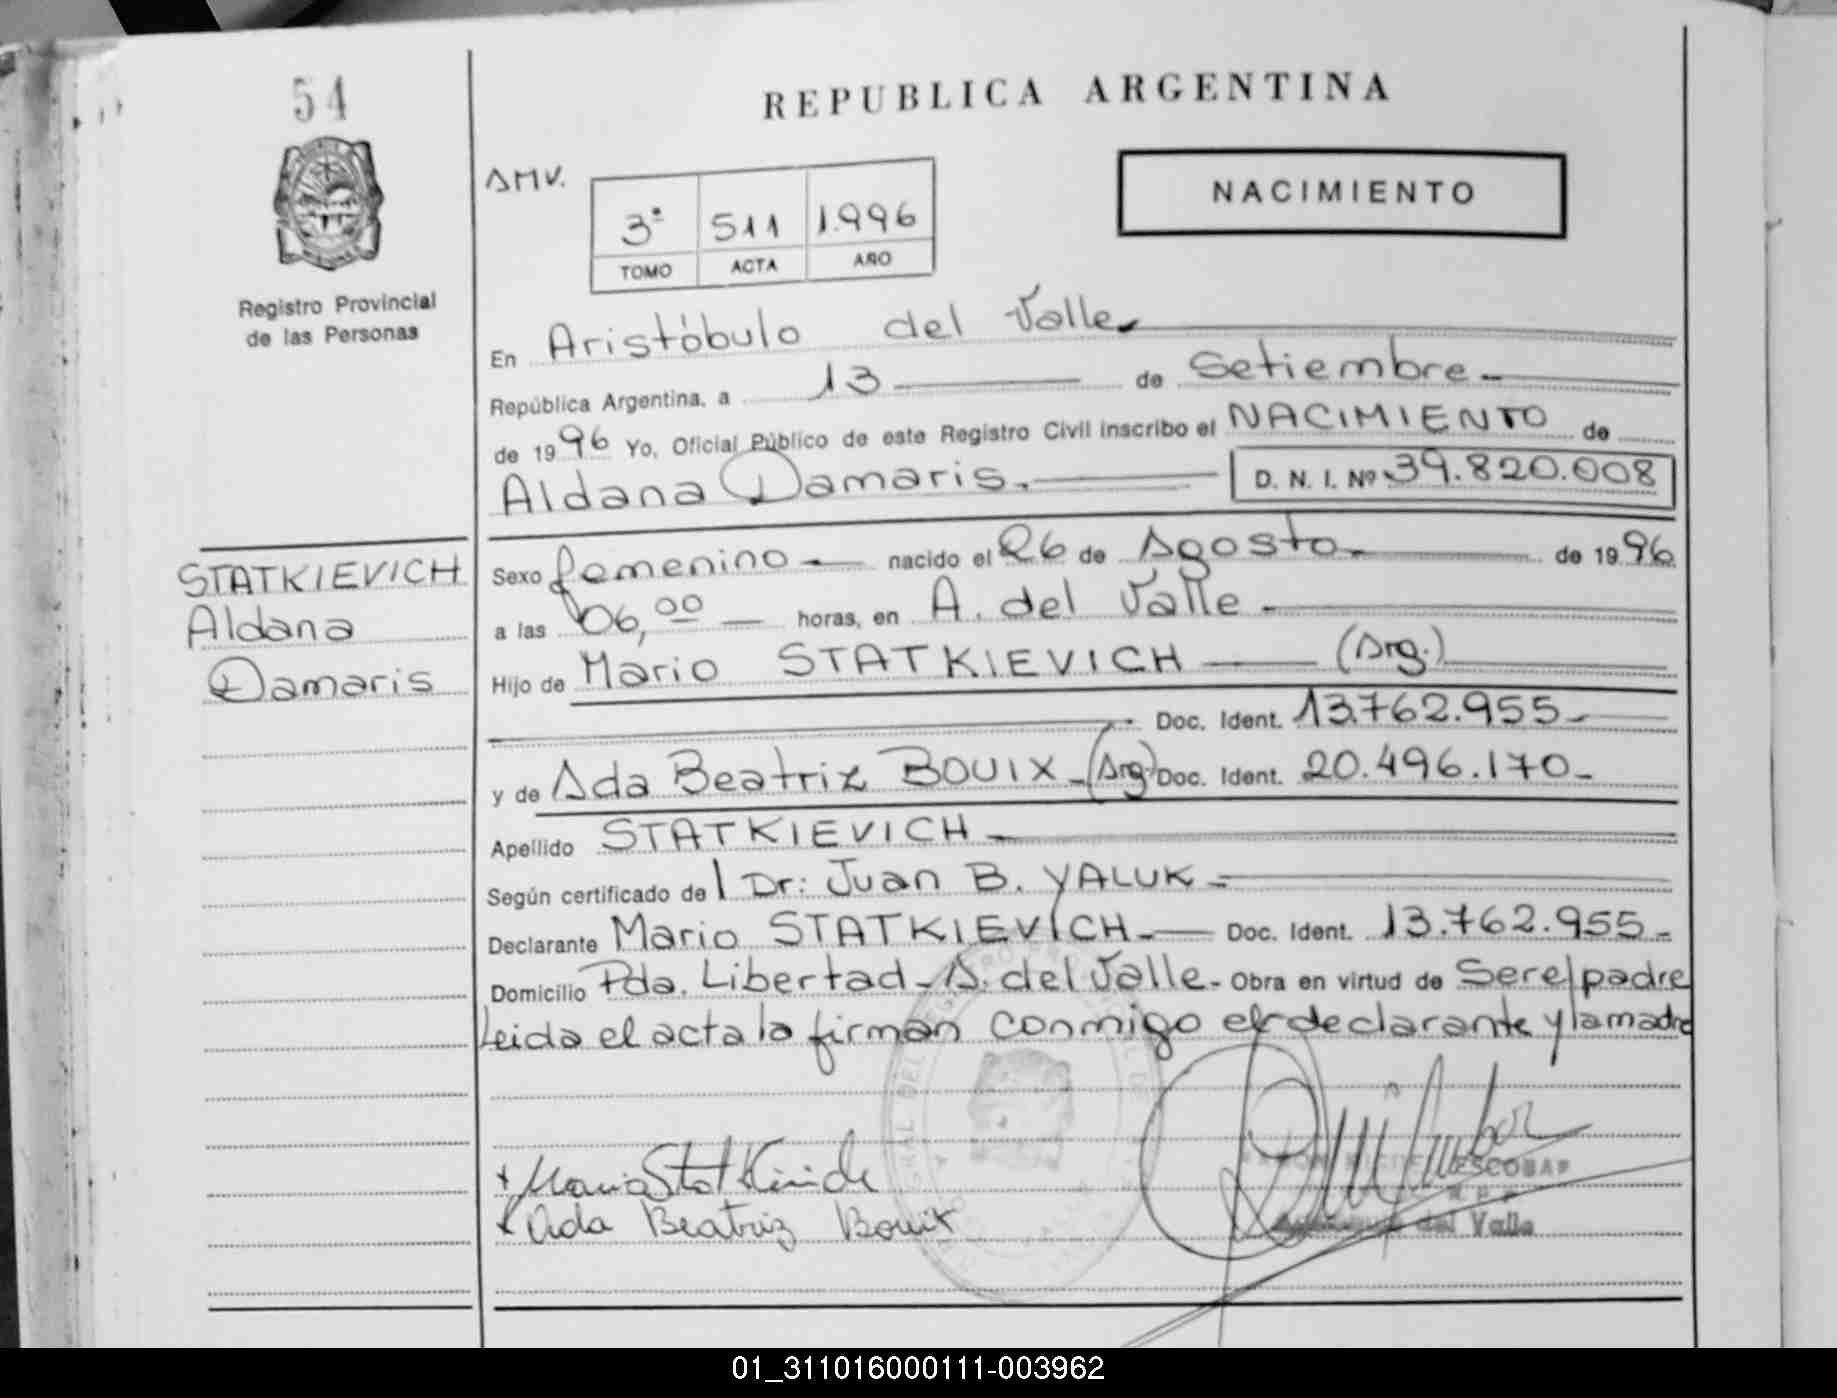 54
REPUBLICA ARGENTINA
AMV.
NACIMIENTO
3º 511 1.996
TOMO ACTA AÑO
Registro Provincial
de las Personas
En Aristóbulo del Valle
República Argentina, a 13 de Setiembre
de 1996 Yo, Oficial Público de este Registro Civil inscribo el NACIMIENTO de
Aldana Damaris. D. N. I. Nº 39.820.008
STATKIEVICH
Aldana
Damaris
Sexo femenino nacido el 26 de Agosto de 1996
a las 06,00 horas, en A. del Valle
Hijo de Mario STATKIEVICH (Arg.)
Doc. Ident. 13.762.955
y de Ada Beatriz BOUIX (Arg.) Doc. Ident. 20.496.170
Apellido STATKIEVICH
Según certificado de Dr: Juan B. YALUK
Declarante Mario STATKIEVICH Doc. Ident. 13.762.955
Domicilio Pda. Libertad - A. del Valle - Obra en virtud de Ser el padre
Leida el acta la firman conmigo el declarante y la madre
Ada Beatriz Bouix
ESCOBAR
del Valle
01_311016000111-003962